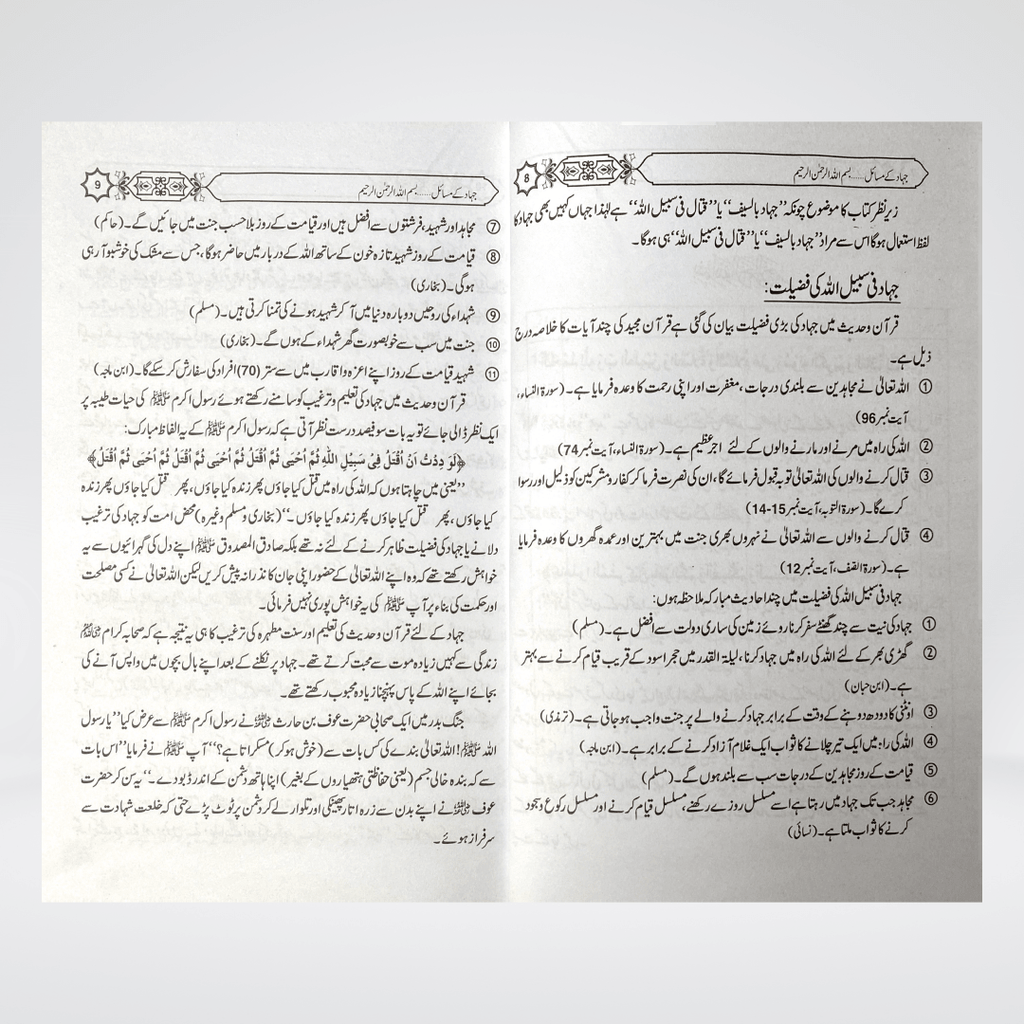 جہاد کے مسائل......بسم اللہ الرحمٰن الرحیم
8
زیر نظر کتاب کا موضوع چونکہ ’’جہاد بالسیف‘‘ یا ’’قتال فی سبیل اللہ‘‘ ہے لہٰذا جہاں کہیں بھی جہاد کا
لفظ استعمال ہوگا اس سے مراد ’’جہاد بالسیف‘‘ یا ’’قتال فی سبیل اللہ‘‘ ہی ہوگا۔
جہاد فی سبیل اللہ کی فضیلت:
قرآن وحدیث میں جہاد کی بڑی فضیلت بیان کی گئی ہے قرآن مجید کی چند آیات کا خلاصہ درج
ذیل ہے۔
① اللہ تعالیٰ نے مجاہدین سے بلندی درجات، مغفرت اور اپنی رحمت کا وعدہ فرمایا ہے۔ (سورۃ النساء،
آیت نمبر 96)
② اللہ کی راہ میں مرنے اور مارنے والوں کے لئے اجر عظیم ہے۔ (سورۃ النساء، آیت نمبر 74)
③ قتال کرنے والوں کی اللہ تعالیٰ توبہ قبول فرمائے گا، ان کی نصرت فرما کر کفار و مشرکین کو ذلیل اور رسوا
کرے گا۔ (سورۃ التوبہ، آیت نمبر 15-14)
④ قتال کرنے والوں سے اللہ تعالیٰ نے نہروں بھری جنت میں بہترین اور عمدہ گھروں کا وعدہ فرمایا
ہے۔ (سورۃ الصف، آیت نمبر 12)
جہاد فی سبیل اللہ کی فضیلت میں چند احادیث مبارکہ ملاحظہ ہوں:
① جہاد کی نیت سے چند گھنٹے سفر کرنا روئے زمین کی ساری دولت سے افضل ہے۔ (مسلم)
② گھڑی بھر کے لئے اللہ کی راہ میں جہاد کرنا، لیلۃ القدر میں حجر اسود کے قریب قیام کرنے سے بہتر
ہے۔ (ابن حبان)
③ اونٹنی کا دودھ دوہنے کے وقت کے برابر جہاد کرنے والے پر جنت واجب ہوجاتی ہے۔ (ترمذی)
④ اللہ کی راہ میں ایک تیر چلانے کا ثواب ایک غلام آزاد کرنے کے برابر ہے۔ (ابن ماجہ)
⑤ قیامت کے روز مجاہدین کے درجات سب سے بلند ہوں گے۔ (مسلم)
⑥ مجاہد جب تک جہاد میں رہتا ہے اسے مسلسل روزے رکھنے، مسلسل قیام کرنے اور مسلسل رکوع وسجود
کرنے کا ثواب ملتا ہے۔ (نسائی)
جہاد کے مسائل......بسم اللہ الرحمٰن الرحیم
9
⑦ مجاہد اور شہید، فرشتوں سے افضل ہیں اور قیامت کے روز بلاحسب جنت میں جائیں گے۔ (حاکم)
⑧ قیامت کے روز شہید تازہ خون کے ساتھ اللہ کے دربار میں حاضر ہوگا، جس سے مشک کی خوشبو آرہی
ہوگی۔ (بخاری)
⑨ شہداء کی روحیں دوبارہ دنیا میں آ کر شہید ہونے کی تمنا کرتی ہیں۔ (مسلم)
⑩ جنت میں سب سے خوبصورت گھر شہداء کے ہوں گے۔ (بخاری)
⑪ شہید قیامت کے روز اپنے اعزہ واقارب میں سے ستر (70) افراد کی سفارش کرسکے گا۔ (ابن ماجہ)
قرآن وحدیث میں جہاد کی تعلیم وترغیب کو سامنے رکھتے ہوئے رسول اکرم ﷺ کی حیات طیبہ پر
ایک نظر ڈالی جائے تو یہ بات سو فیصد درست نظر آتی ہے کہ رسول اکرم ﷺ کے یہ الفاظ مبارک:
﴿لَوَ دِدْتُ اَنْ اُقْتَلَ فِیْ سَبِیْلِ اللہِ ثُمَّ اُحْیٰی ثُمَّ اُقْتَلُ ثُمَّ اُحْیٰی ثُمَّ اُقْتَلُ ثُمَّ اُحْیٰی ثُمَّ اُقْتَلُ﴾
’’یعنی میں چاہتا ہوں کہ اللہ کی راہ میں قتل کیا جاؤں پھر زندہ کیا جاؤں، پھر قتل کیا جاؤں پھر زندہ
کیا جاؤں، پھر قتل کیا جاؤں پھر زندہ کیا جاؤں۔‘‘ (بخاری و مسلم وغیرہ) محض امت کو جہاد کی ترغیب
دلانے یا جہاد کی فضیلت ظاہر کرنے کے لئے نہ تھے بلکہ صادق المصدوق ﷺ اپنے دل کی گہرائیوں سے یہ
خواہش رکھتے تھے کہ وہ اپنے اللہ تعالیٰ کے حضور اپنی جان کا نذرانہ پیش کریں لیکن اللہ تعالیٰ نے کسی مصلحت
اور حکمت کی بناء پر آپ ﷺ کی یہ خواہش پوری نہیں فرمائی۔
جہاد کے لئے قرآن وحدیث کی تعلیم اور سنت مطہرہ کی ترغیب کا ہی یہ نتیجہ ہے کہ صحابہ کرام ﷺ
زندگی سے کہیں زیادہ موت سے محبت کرتے تھے۔ جہاد پر نکلنے کے بعد اپنے بال بچوں میں واپس آنے کی
بجائے اپنے اللہ کے پاس پہنچنا زیادہ محبوب رکھتے تھے۔
جنگ بدر میں ایک صحابی حضرت عوف بن حارث نے رسول اکرم ﷺ سے عرض کیا ’’یا رسول
اللہ ﷺ! اللہ تعالیٰ بندے کی کس بات سے (خوش ہو کر) مسکراتا ہے؟‘‘ آپ ﷺ نے فرمایا ’’اس بات
سے کہ بندہ خالی جسم (یعنی حفاظتی ہتھیاروں کے بغیر) اپنا ہاتھ دشمن کے اندر ڈبو دے۔‘‘ یہ سن کر حضرت
عوف نے اپنے بدن سے زرہ اتار پھینکی اور تلوار لے کر دشمن پر ٹوٹ پڑے حتی کہ خلعت شہادت سے
سرفراز ہوئے۔